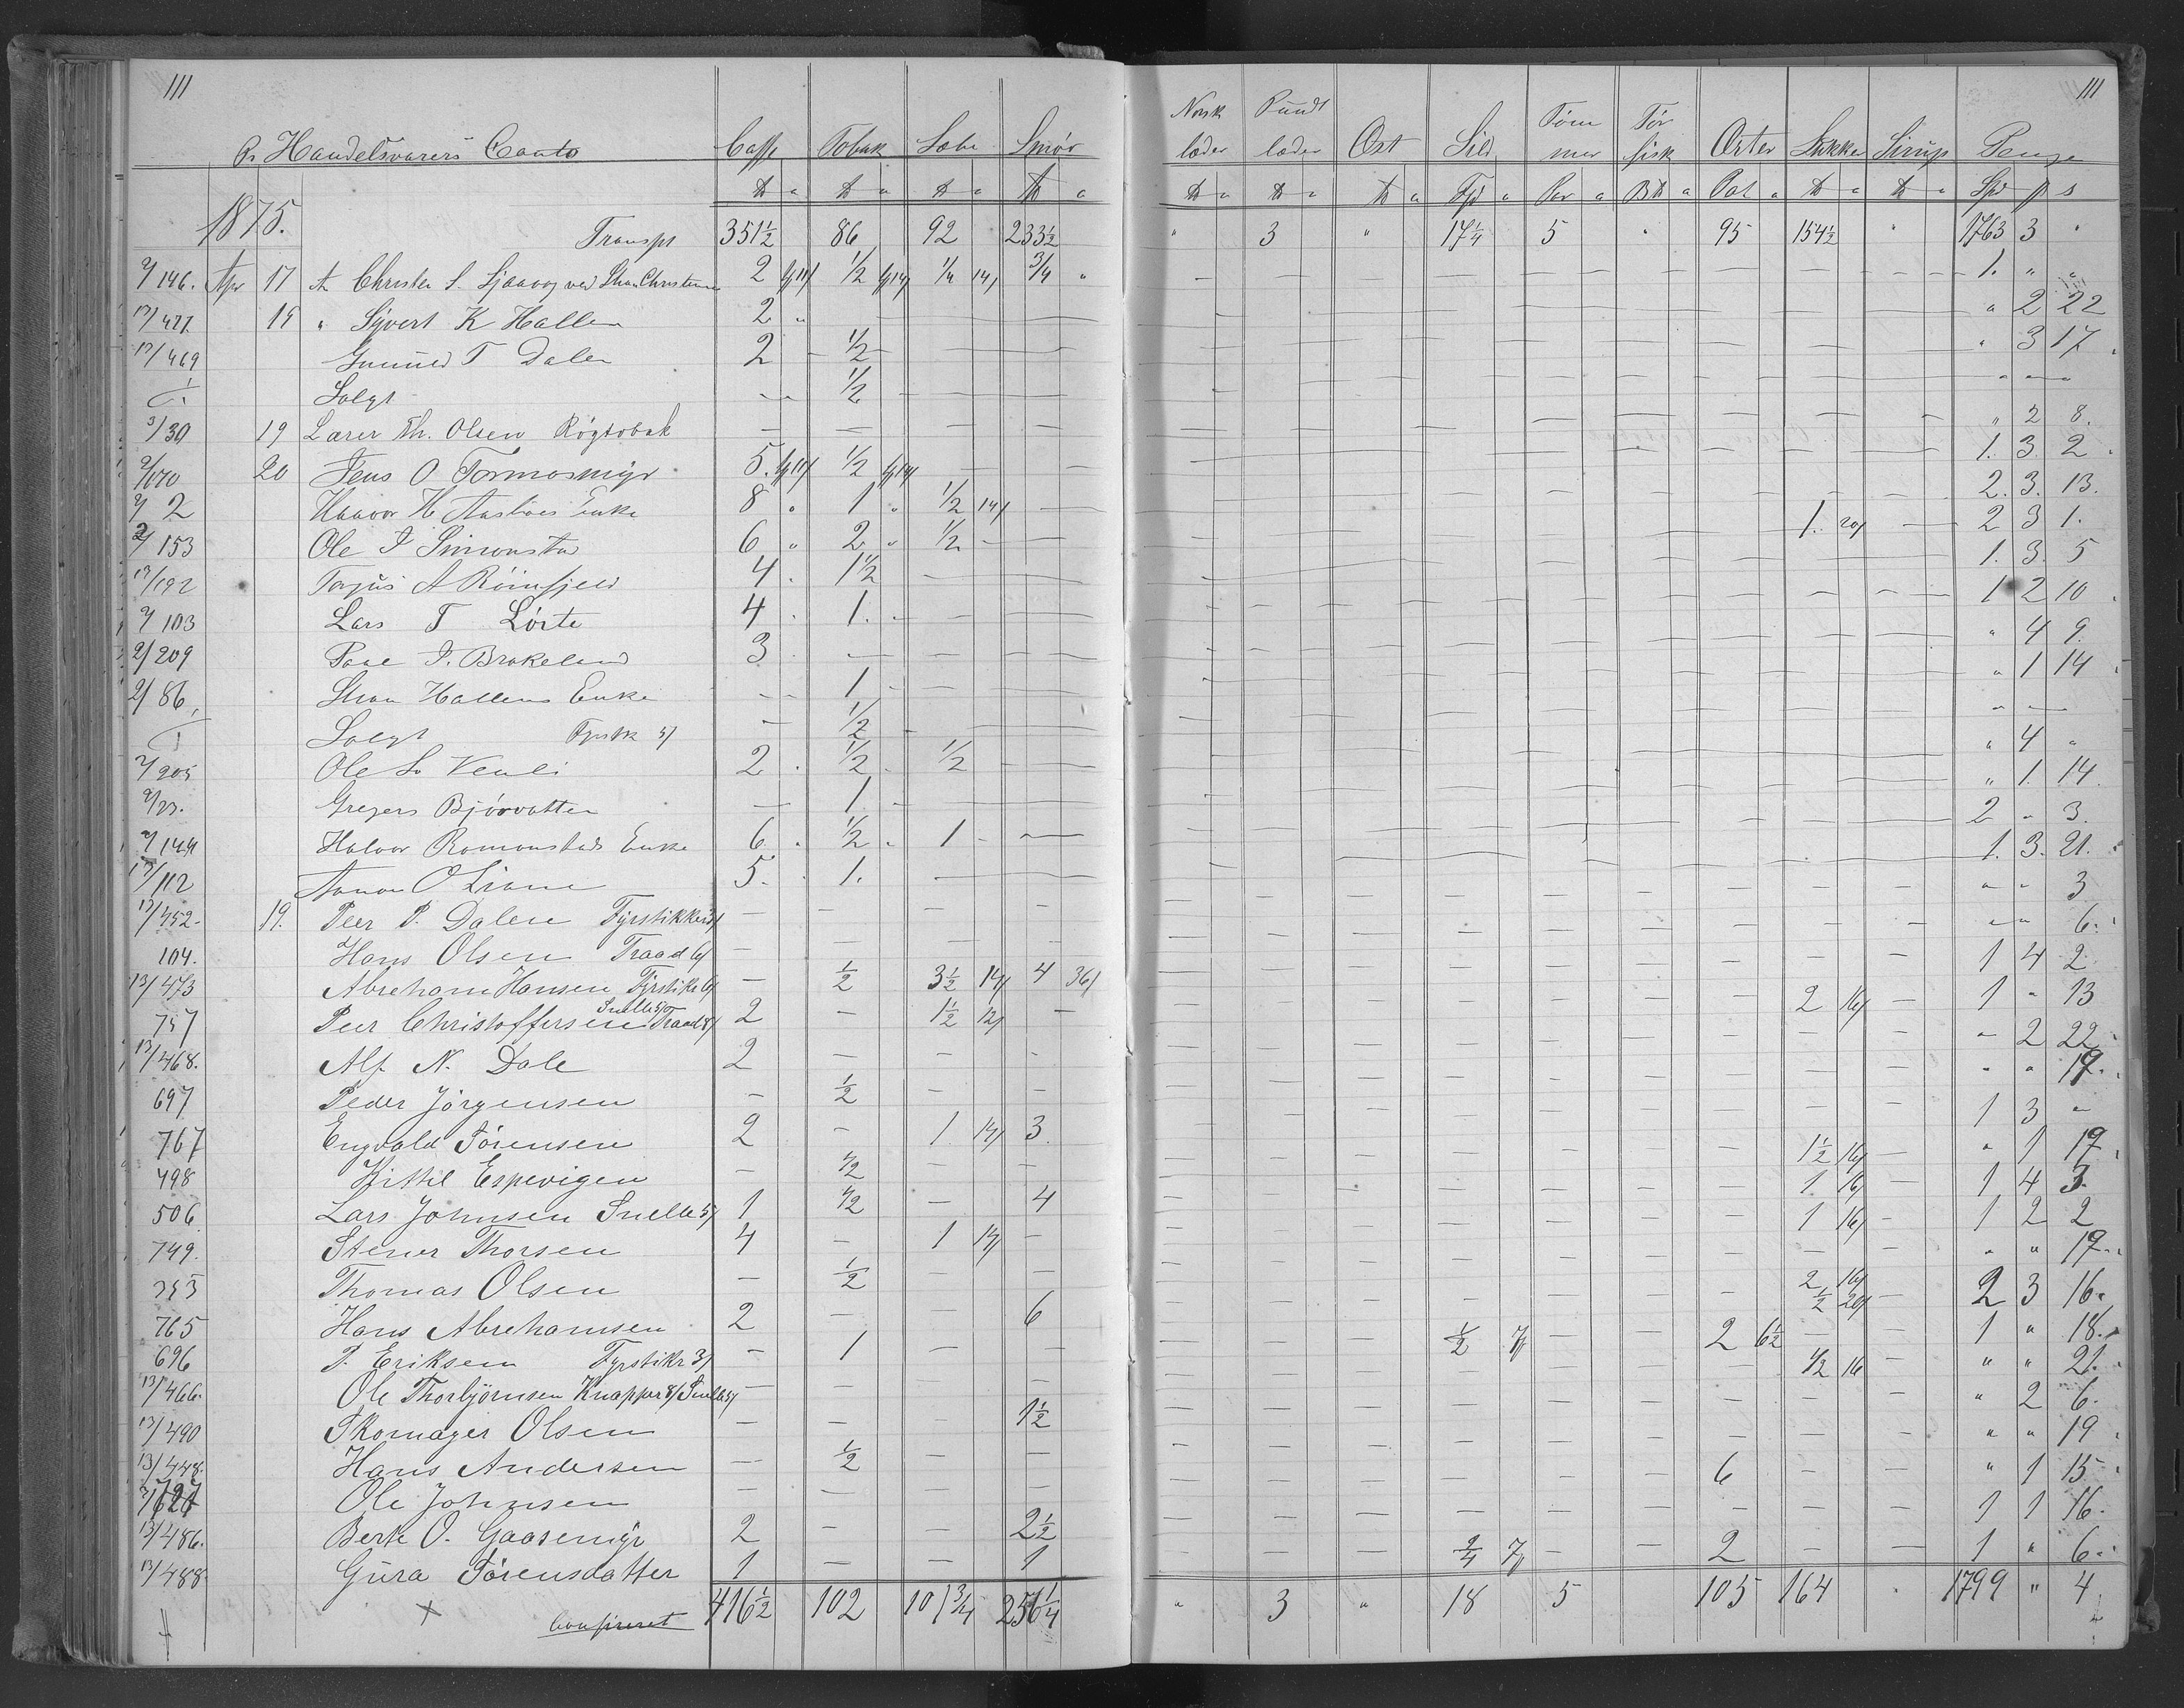 111 111
Pr Handelsvarers Conto Caffe Tobak Sæbe Smør Norsk læder Pundt læder Ost Sild Töm mer Tör fisk Orter Sukker Sirup Penge
1875. Transpt 351½ 86 92 233½ " 3 " 17¼ 5 " 95 154½ " 1763 3 "
2/146. Apr 17 Christen S. Sjaavog ved 2 ½ ¼ 14/ ¾ " 1. " "
13/471 19 " Syvert K Hallen 2 " " 2 22
13/469 Gunuld T Dalen 2 ½ " 3 17
Solgt ½
3/30 19 Lærer Th. Olsen Røgtobak " 2 8.
2/170 20 Jens O Tormosmyr 5. ½ 1. 3. 2
2/2 Haavor H Aaslies Enke 8 1 ½ 14/ 2. 3. 13.
2/153 Ole J Simonstad 6 2 ½ 1. 20/ 2 3 1.
13/192 Tarjus A Röinfjeld 4. 1½ 1. 3. 5
2/103 Lars T Lörte 4 1. 1 2 10
2/209 Paal J. Brakeland 3 " 4 9.
2/86 Hallens Enke 1 " 1 14
Solgt Fyrstk 3/ ½
2/205 Ole Venli 2 ½ ½ " 4 "
2/23. Gregers Bjórvatten 1 " 1. 14
2/144 Halvor Romonstads Enke 6. ½ 1 2 " 3.
13/112 Aanon O Liane 5. 1. 1. 3. 21.
13/452. 19. Peer P. Dalen Fyrstikker 3/ " " 3
104. Hans Olsen Traad 6/ " " 6.
13/473 Abreham Hansen Fyrstike 6/ ½ 3½ 14/ 4 36/ 1 4 2
757 Peer Christoffersen Snelle 5/ Traad 8/ 2 1½ 12/ 2 16/ 1 " 13
13/468. Alf N. Dale 2 " 2 22
697 Peder Jörgensen ½ " " 17.
767 Engvald Sörensen 2 1 14/ 3. 1 3 "
498 Kittil Espevigen ½ 1½ 16/ " 1 19
506 Lars Johnsen Snelle 5/ 1 ½ 4 1 16/ 1 4 3.
749. Stener Thorsen 4 1 14/ 1 16/ 1 2 2
353 Thomas Olsen ½ " " 17.
765 Hans Abrehamsen 2 6 2 16/ ½ 20/ 2 3 16.
696 P. Eriksen Fyrstikr 3/ 1 ½ 7/ 2 6½ 1 " 18.
13/466. Ole Thorbjörnsen Knapper 8/ Snelle 5/ ½ 16 " " 21.
13/490 Skomager Olsen 1½ " 2 6.
13/448. Hans Andersen ½ " " 19
Ole Johnsen 6 " 1 15
13/486. Berte O. Gaasemyr 2 2½ 1 1 16.
13/488 Gura Sörensdatter 1 1 2/4 7/ 2 1 " 6.
x Confereret 416½ 102 101¾ 256¼ " 3 " 18 5 105 164 1799 " 4